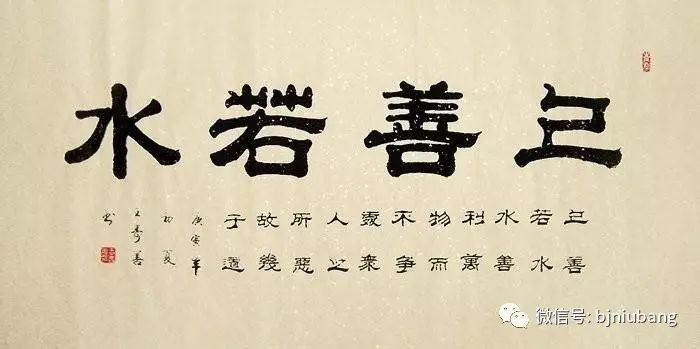 上善若水
上善
若水
水善
利萬
物而
不争
處衆
人之
所惡
故幾
于道
庚寅年
初夏
秀善
书
微信号: bjniubang